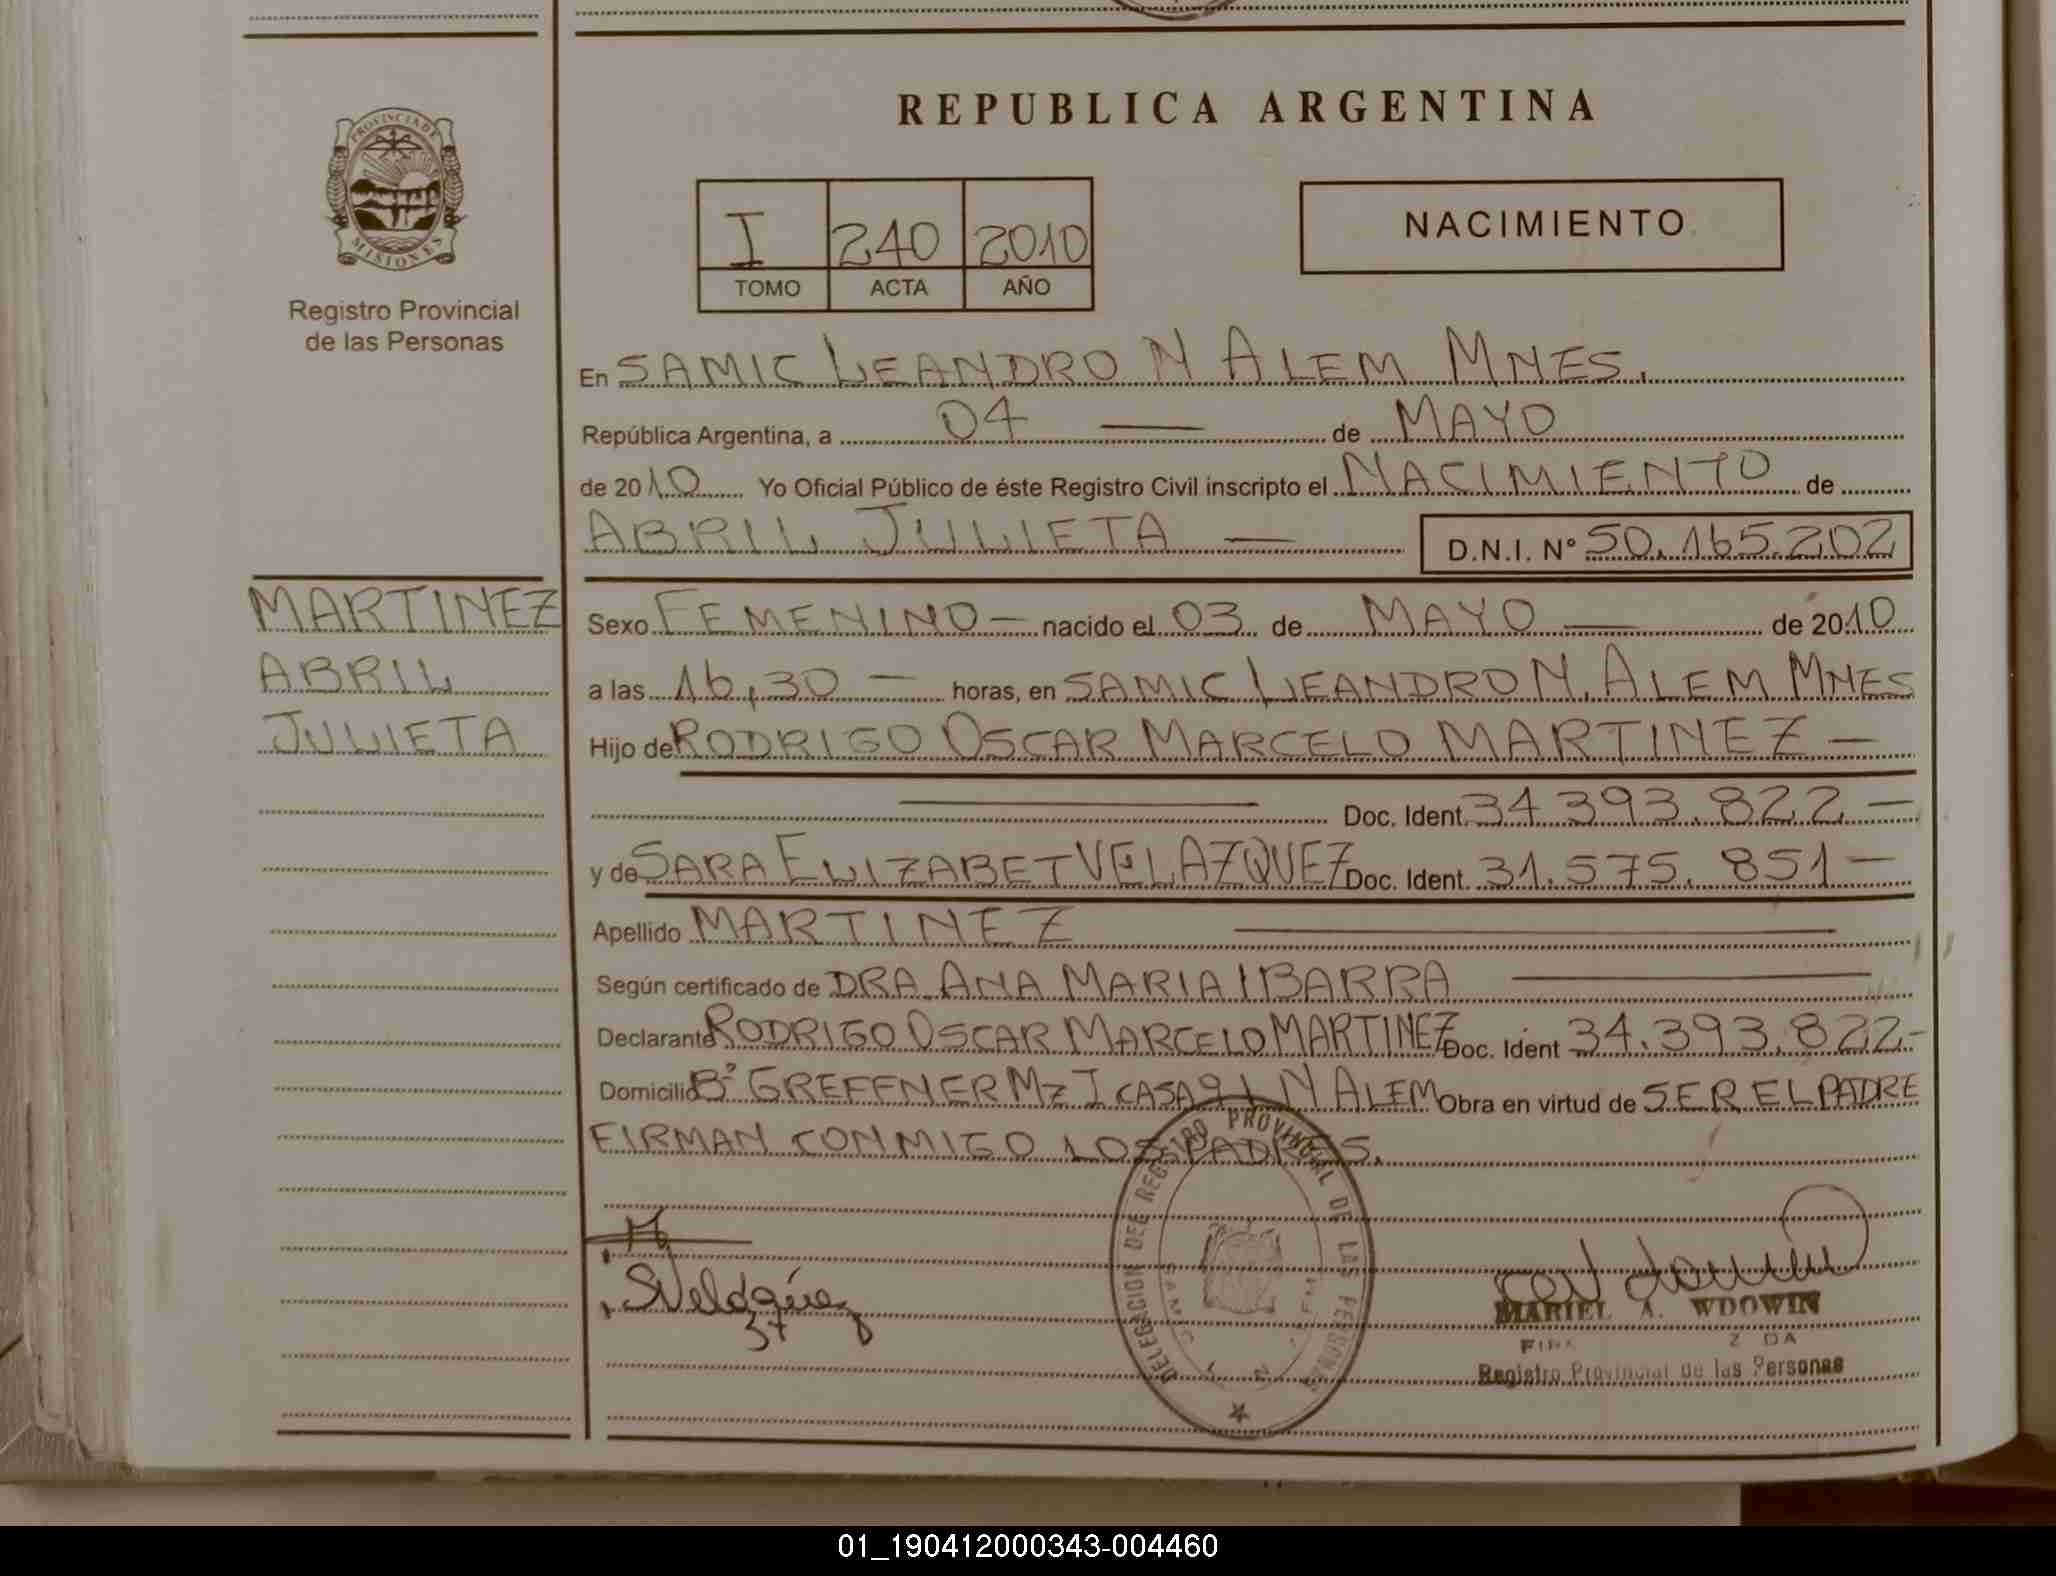 REPUBLICA ARGENTINA
PROVINCIA DE
MISIONES
Registro Provincial
de las Personas
I 240 2010
TOMO ACTA AÑO
NACIMIENTO
En SAMIC LEANDRO N ALEM MNES.
República Argentina, a 04 — de MAYO
de 2010 Yo Oficial Público de éste Registro Civil inscripto el NACIMIENTO de
ABRIL JULIETA — D.N.I. Nº 50.165.202
MARTINEZ
ABRIL
JULIETA
Sexo FEMENINO — nacido el 03 de MAYO — de 2010
a las 16,30 — horas, en SAMIC LEANDRO N. ALEM MNES
Hijo de RODRIGO OSCAR MARCELO MARTINEZ —
— Doc. Ident. 34.393.822 —
y de SARA ELIZABET VELAZQUEZ Doc. Ident. 31.575.851 —
Apellido MARTINEZ —
Según certificado de DRA. ANA MARIA IBARRA —
Declarante RODRIGO OSCAR MARCELO MARTINEZ Doc. Ident 34.393.822-
Domicilio Bº GREFFNER MZ I CASA 91 N ALEM Obra en virtud de SER EL PADRE
FIRMAN CONMIGO LOS PADRES.
DELEGACION DEL REGISTRO PROVINCIAL DE LAS PERSONAS
SAMIC
SVelazquez
37
MARIEL A. WDOWIN
Registro Provincial de las Personas
01_190412000343-004460